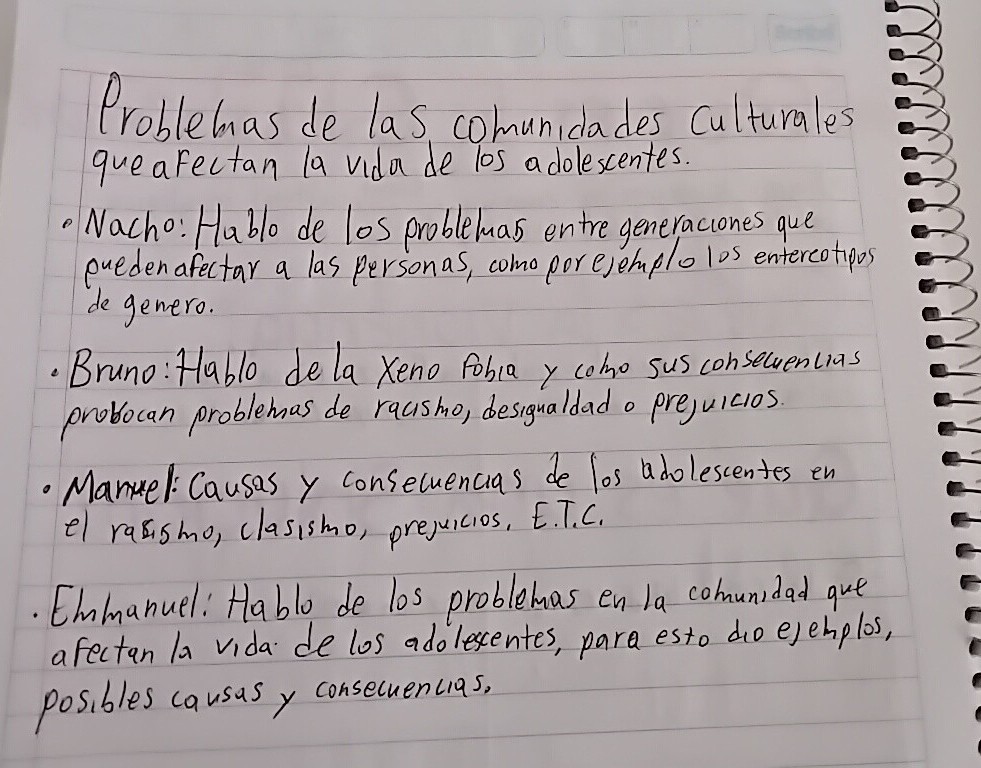 Problemas de las comunidades culturales
que afectan la vida de los adolescentes.
• Nacho: Hablo de los problemas entre generaciones que
pueden afectar a las personas, como por ejemplo los entercotipos
de genero.
• Bruno: Hablo de la Xeno fobia y como sus consecuencias
probocan problemas de racismo, desigualdad o prejuicios.
• Manuel: Causas y consecuencias de los adolescentes en
el rasismo, clasismo, prejuicios, E.T.C.
• Emmanuel: Hablo de los problemas en la comunidad que
afectan la vida de los adolescentes, para esto dio ejemplos,
posibles causas y consecuencias.